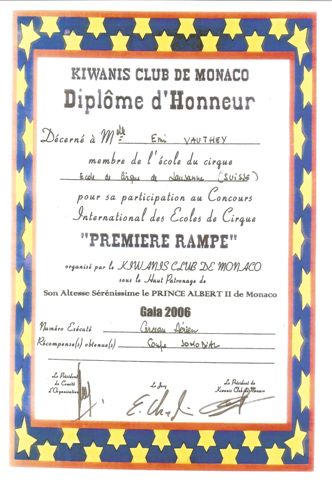 KIWANIS CLUB DE MONACO
Diplôme d'Honneur
Décerné à Mlle Emi VAUTHEY
membre de l'école du cirque
Ecole de Cirque de Lausanne (SUISSE)
pour sa participation au Concours
International des Ecoles de Cirque
"PREMIERE RAMPE"
organisé par le KIWANIS CLUB DE MONACO
sous le Haut Patronage de
Son Altesse Sérénissime le PRINCE ALBERT II de Monaco
Gala 2006
Numéro Exécuté Cerceau Aérien
Récompense(s) obtenue(s) Coupe
Le Président
de Comité
d'Organisation
Le Jury
Le Président du
Kiwanis Club de Monaco